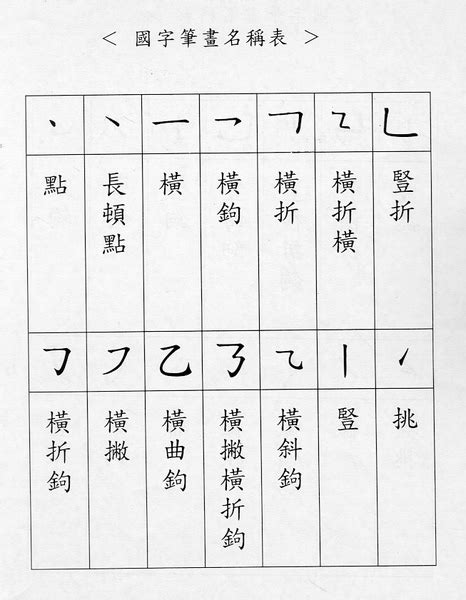 < 國字筆畫名稱表 >
丶 ㇔ 一 ㇖ ㇕ ㇅ ㇗
點 長頓點 橫 橫鉤 橫折 橫折橫 豎折
㇆ ㇇ 乙 ㇌ ㇈ 丨 ㇀
橫折鉤 橫撇 橫曲鉤 橫撇橫折鉤 橫斜鉤 豎 挑